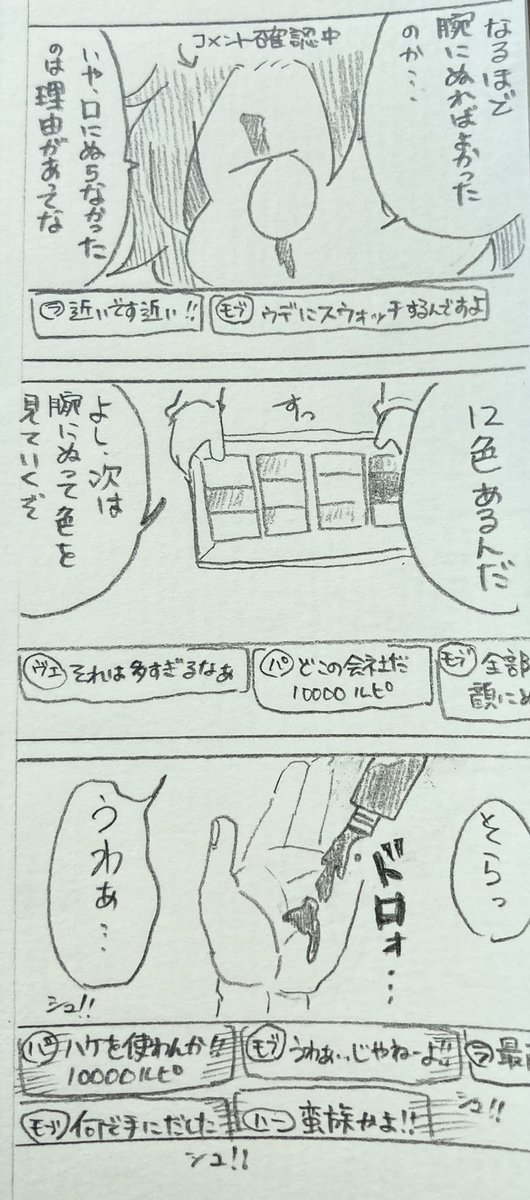 なるほど
腕にぬればよかった
のか…
コメント確認中
いや、口にぬらなかった
のは理由があってな
モブ ウデにスウォッチするんですよ
ラ 近いです近い!!
12色あるんだ
すっ
よし、次は
腕にぬって色を
見ていくぞ
モブ 全部
顔にぬ
パ どこの会社だ
10000ルピ
ヴェ それは多すぎるなぁ
そらっ
ドロォ…
うわぁ…
シュ!!
パ ハケを使わんか!!
10000ルピ
モブ うわぁ…じゃねーよ!!
ラ 最
モブ 何で手にだした
ハー 蛮族かよ!!
シュ!!
シュ!!